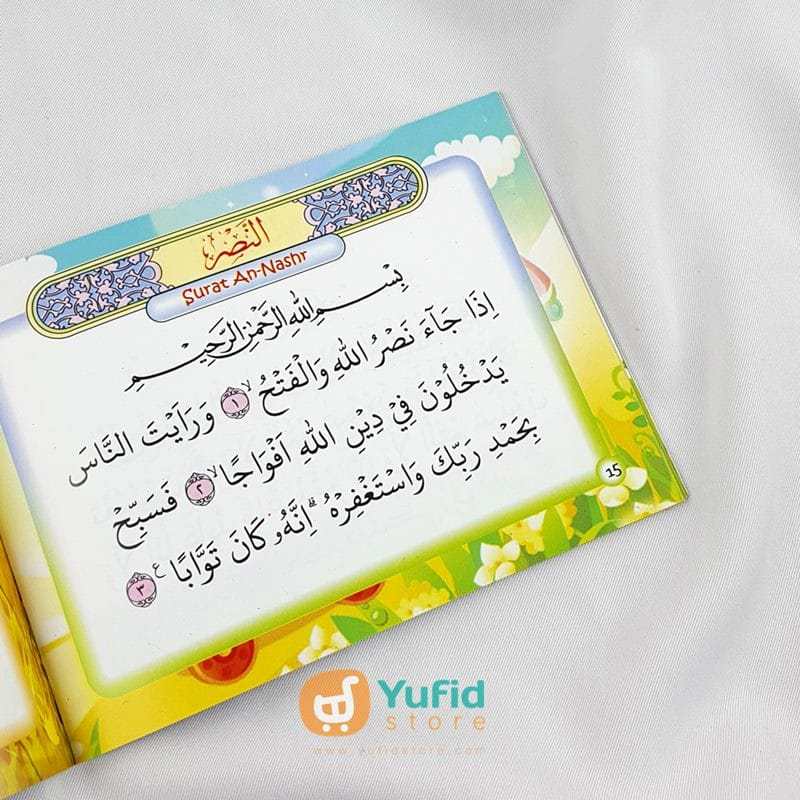 النَّصْر
Surat An-Nashr
بِسْمِ اللهِ الرَّحْمٰنِ الرَّحِيْمِ
اِذَا جَآءَ نَصْرُ اللهِ وَالْفَتْحُۙ ١ وَرَاَيْتَ النَّاسَ
يَدْخُلُوْنَ فِيْ دِيْنِ اللهِ اَفْوَاجًاۙ ٢ فَسَبِّحْ
بِحَمْدِ رَبِّكَ وَاسْتَغْفِرْهُۗ اِنَّهٗ كَانَ تَوَّابًا ع ٣
15
Yufid
store
www.yufidstore.com